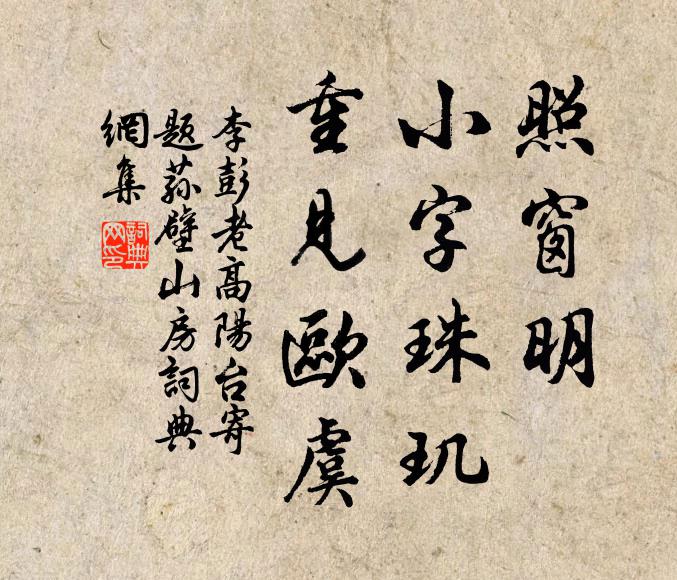 照窗明
小字珠玑
重見歐虞
李彭老高陽台寄
題荪壁山房詞典
網集
詞典
网印